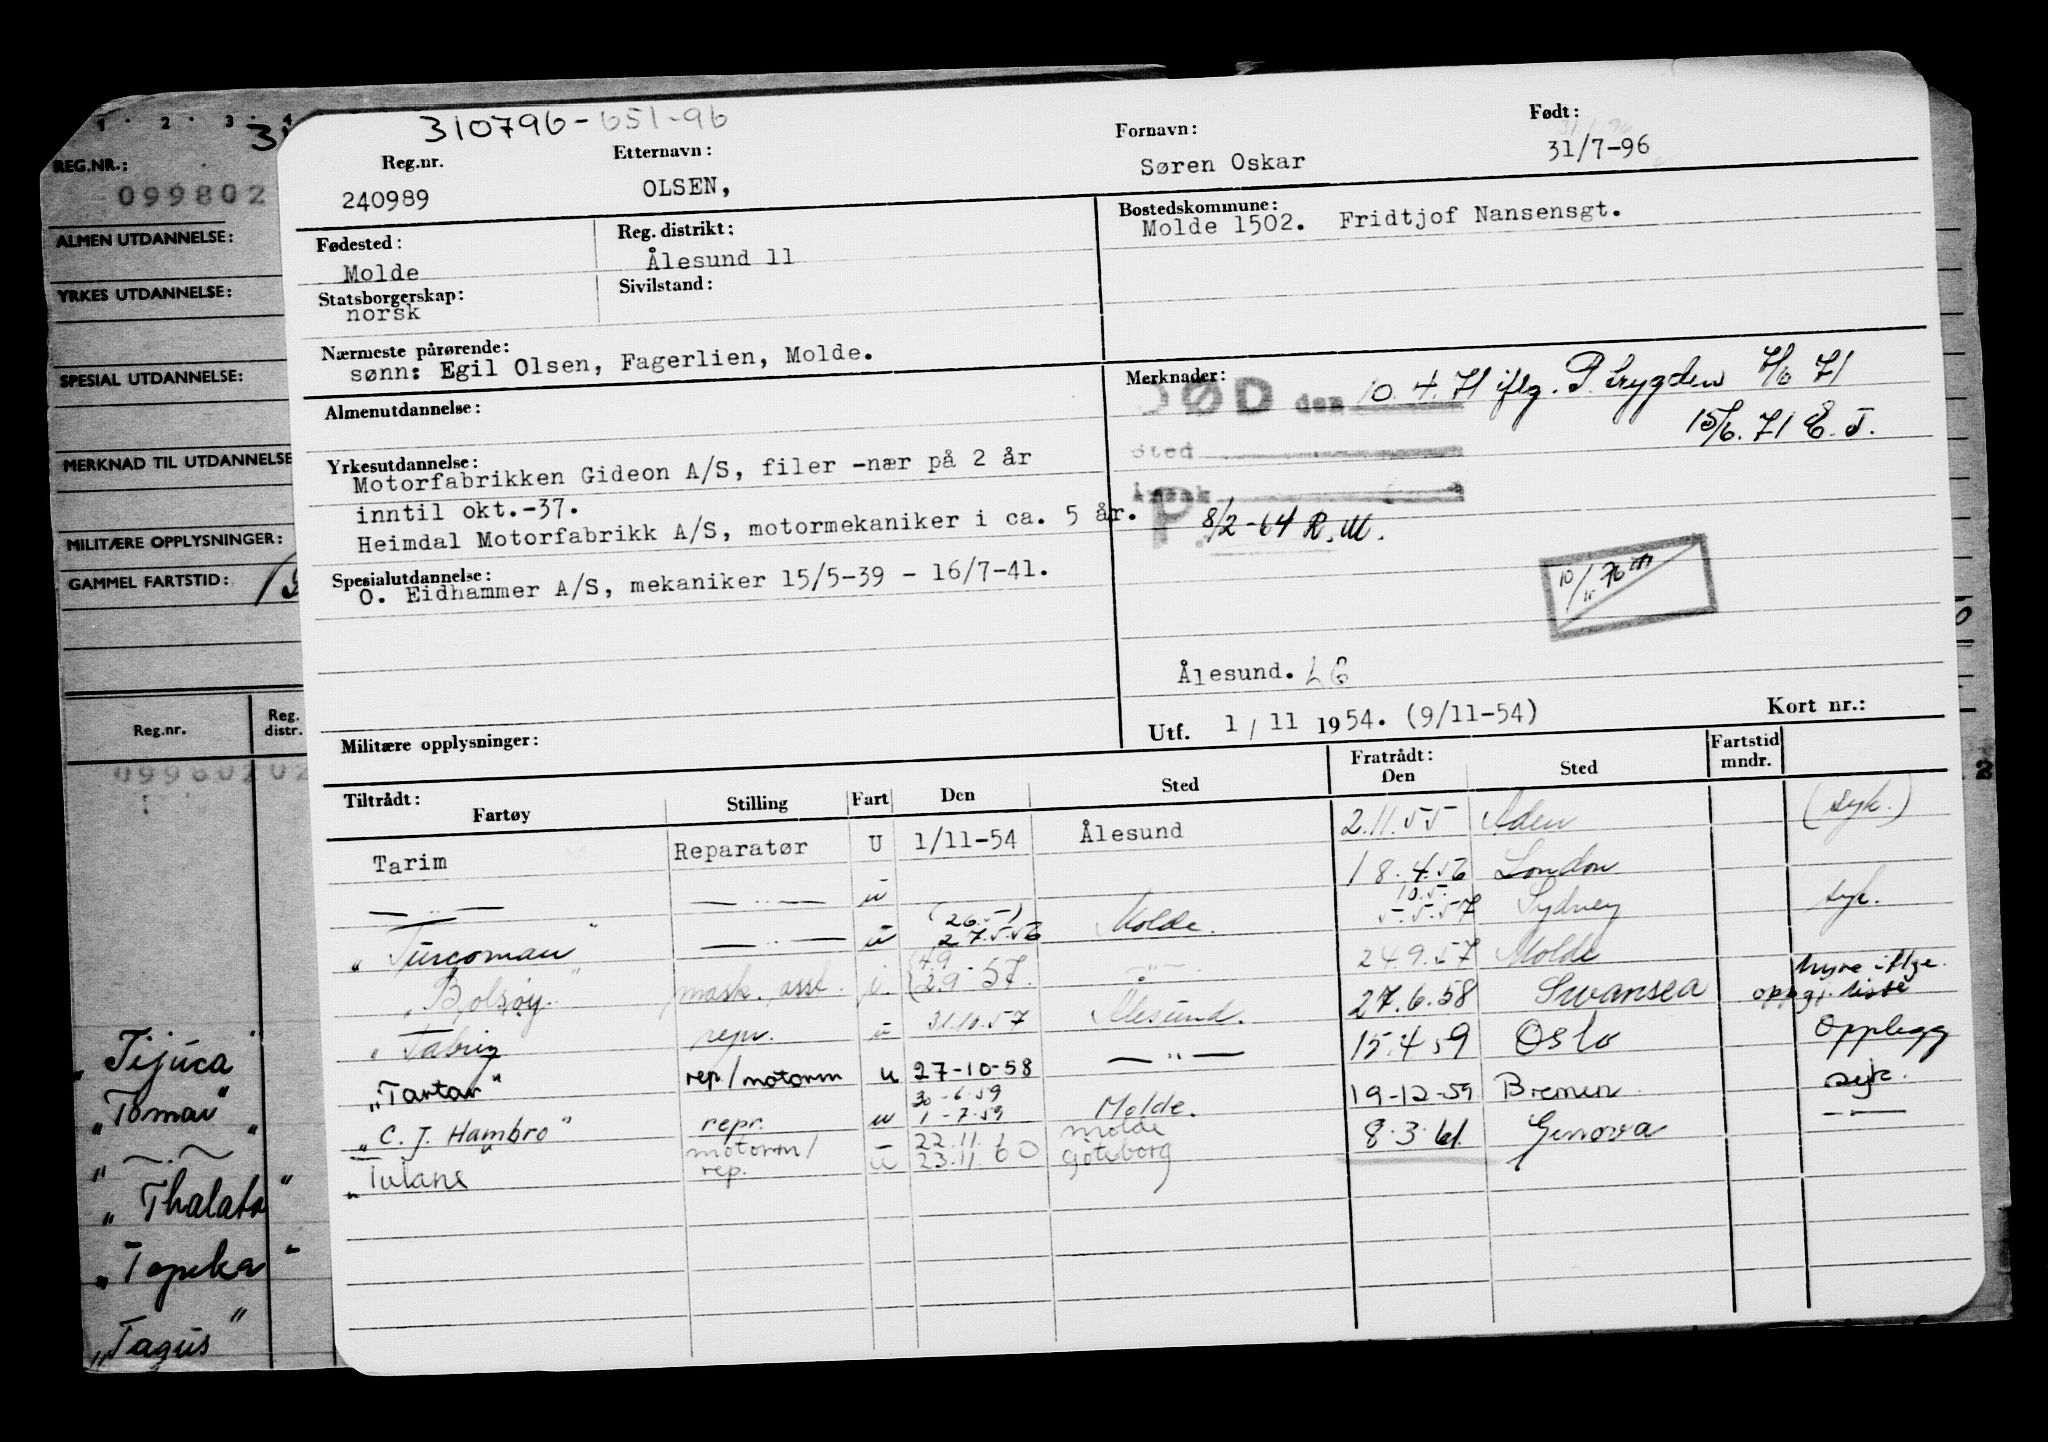 1 . 2 . 3 . 4
310796-651-96
REG.NR.:
099802
ALMEN UTDANNELSE:
YRKES UTDANNELSE:
SPESIAL UTDANNELSE:
MERKNAD TIL UTDANNELSE
MILITÆRE OPPLYSNINGER:
GAMMEL FARTSTID:
Reg.nr. Reg. distr.
09980202
"Tijuca"
"Tomar"
" — . — "
"Thalatta"
"Topeka"
"Tagus"
Reg.nr. Etternavn: Fornavn: Født:
240989 OLSEN, Søren Oskar 31/7-96
Fødested: Reg. distrikt: Bostedskommune:
Molde Ålesund 11 Molde 1502. Fridtjof Nansensgt.
Statsborgerskap: Sivilstand:
norsk
Nærmeste pårørende:
sønn: Egil Olsen, Fagerlien, Molde.
Merknader:
DØD den 10.4.71 iflg. P.trygden 7/6 71
15/6.71 E.J.
Sted
Årsak
P. 8/2-64 R.M.
10/11 76
Almenutdannelse:
Yrkesutdannelse:
Motorfabrikken Gideon A/S, filer -nær på 2 år
inntil okt.-37.
Heimdal Motorfabrikk A/S, motormekaniker i ca. 5 år.
Spesialutdannelse:
O. Eidhammer A/S, mekaniker 15/5-39 - 16/7-41.
Ålesund. LG
Militære opplysninger:
Utf. 1/11 1954. (9/11-54) Kort nr.:
Tiltrådt: Fratrådt: Fartstid
Fartøy Stilling Fart Den Sted Den Sted mndr.
Tarim Reparatør U 1/11-54 Ålesund 2.11.55 Aden (syk.)
— " — — " — u 18.4.56 London
"Turcoman" — " — u (26.5) 27.5.56 Molde. 10.5. 5.5.57 Sydney syk.
"Bolsøy" mask. asst. i. (4.9 2.9-57. — " — 24.9.57 Molde
"Tabriz repr. u 31.10.57 Ålesund. 27.6.58 Swansea hyre iflge. oppgj. liste
"Tartar" rep/motorm u 27-10-58 — " — 15.4.59 Oslo Opplegg
"C. J. Hambro" repr. u 30-6.59 1-7.59 Molde. 19-12-59 Bremen syk.
"Tulane" motorm/rep. u 22.11. 23.11.60 Molde Göteborg 8.3.61 Genova — " —